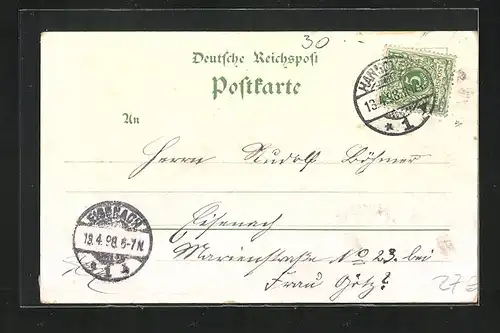 30
Deutsche Reichspost
Postkarte
HANNOVER
13.4.98.
* 1 *
An
Herrn Rudolf Böhmer
EISENACH
13.4.98.6-7N.
* 1 *
Eisenach
Marienstraße No 23. bei
Frau Götz